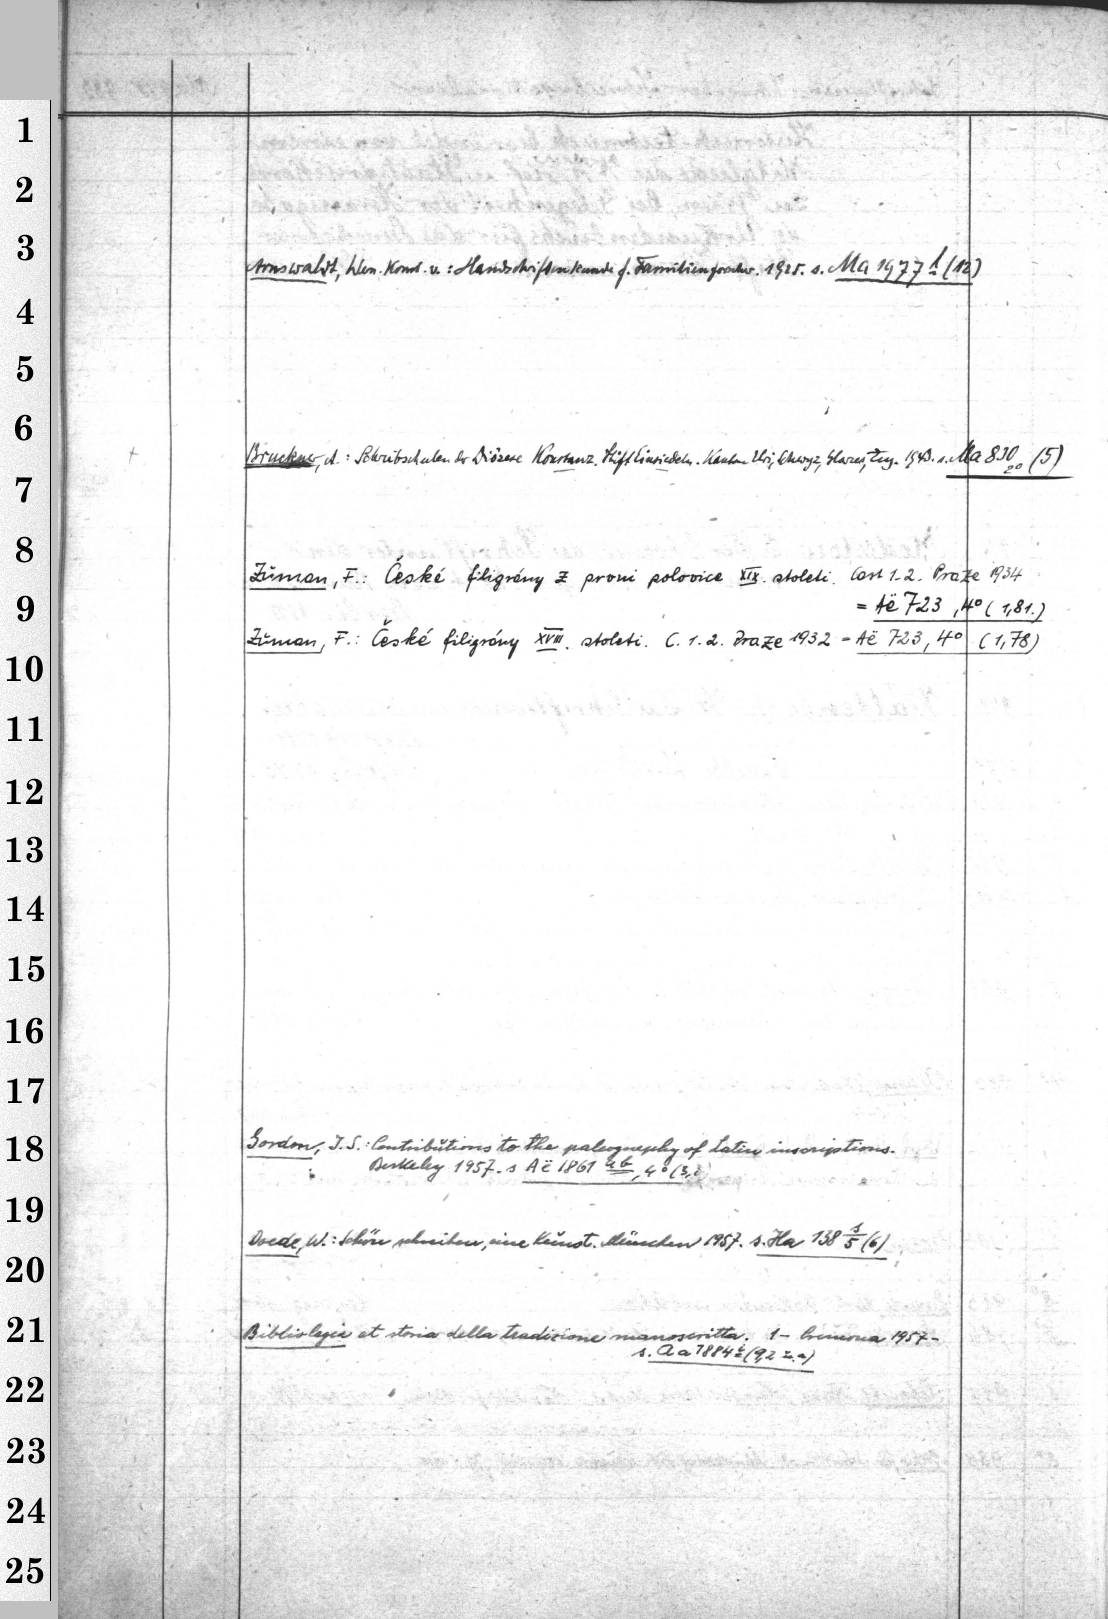 1
2
3
Arnswaldt, Wern. Konst. v.: Handschriftenkunde f. Familienforscher. 1925. s. Ma 1977 l (12)
4
5
6
Bruckner, A.: Schreibschulen der Diözese Konstanz. Stift Einsiedeln. Kantone Uri, Schwyz, Glarus, Zug. 1943. s. Ma 830 20 (5)
7
8
Zuman, F.: České filigrány z první polovice XIX. století. Část 1-2. Praze 1934
9
= Aë 723, 4° (1,81.)
Zuman, F.: České filigrány XVIII. století. C. 1.2. Praze 1932 = Aë 723, 4° (1,78)
10
11
12
13
14
15
16
17
18
Gordon, J.S.: Contributions to the paleography of Latin inscriptions.
Berkeley 1957. s Aë 1861 ab, 4° (3,
19
Doede, W.: Schön schreiben, eine Kunst. München 1957. s. Ha 138 s/5 (6)
20
21
Bibliologia et storia della tradizione manoscritta. 1- Cremona 1957-
s. Aa 7884 (9,2
22
23
24
25